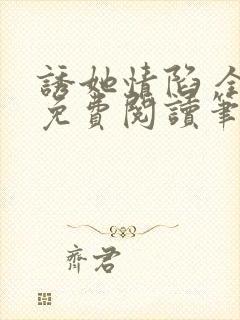 誘她情陷 全
免費閱讀筆
齊君